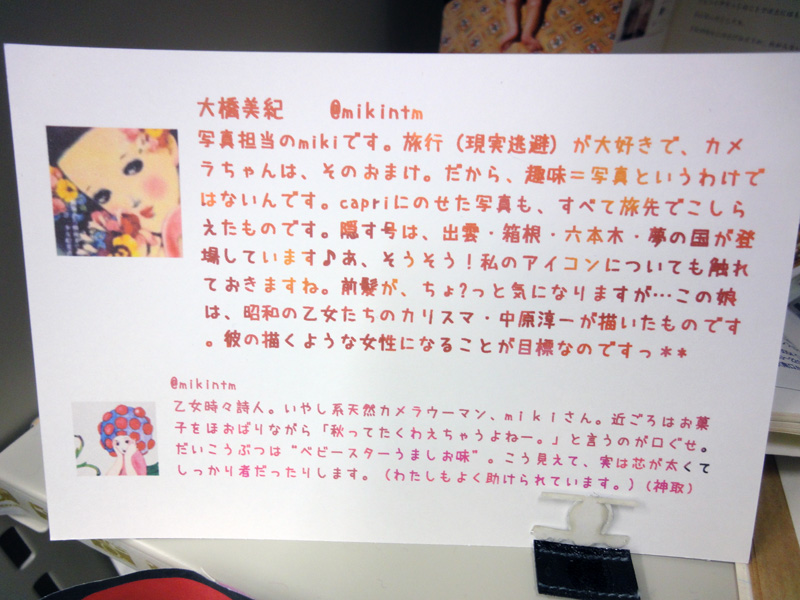 大橋美紀　@mikintm
写真担当のmikiです。旅行（現実逃避）が大好きで、カメ
ラちゃんは、そのおまけ。だから、趣味＝写真というわけで
はないんです。capriにのせた写真も、すべて旅先でこしら
えたものです。隠す号は、出雲・箱根・六本木・夢の国が登
場しています♪あ、そうそう！私のアイコンについても触れ
ておきますね。前髪が、ちょ?っと気になりますが…この娘
は、昭和の乙女たちのカリスマ・中原淳一が描いたものです
。彼の描くような女性になることが目標なのですっ**
@mikintm
乙女時々詩人。いやし系天然カメラウーマン、mikiさん。近ごろはお菓
子をほおばりながら「秋ってたくわえちゃうよねー。」と言うのが口ぐせ。
だいこうぶつは“ベビースターうましお味”。こう見えて、実は芯が太くて
しっかり者だったりします。（わたしもよく助けられています。）（神取）